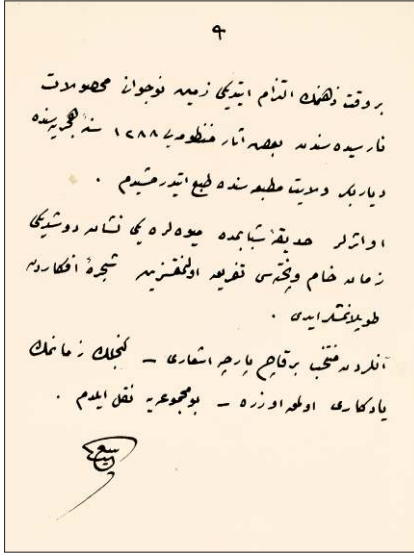 ٩
بر وقت ذهنمك التزام ايتديكى زمين نوجوانى محصولات
نارسيده سندن بعض آثار منظومه يى ١٢٨٨ سنهٔ هجريه سنده
ديار بكر ولايت مطبعه سنده طبع ايتديرمشيدم .
او اثرلر حديقهٔ شبابمده ميوه لره يكى نشانه دوشديكى
زمان خام و پخته سى تفريق اولنمقسزين شجرهٔ افكاردن
طوپلانمشلر ايدى .
آنلردن منتخب بر قاچ پارچه اشعارى – كنجلك زمانمك
يادكارى اولمق اوزره – بو مجموعه يه نقل ايلدم .